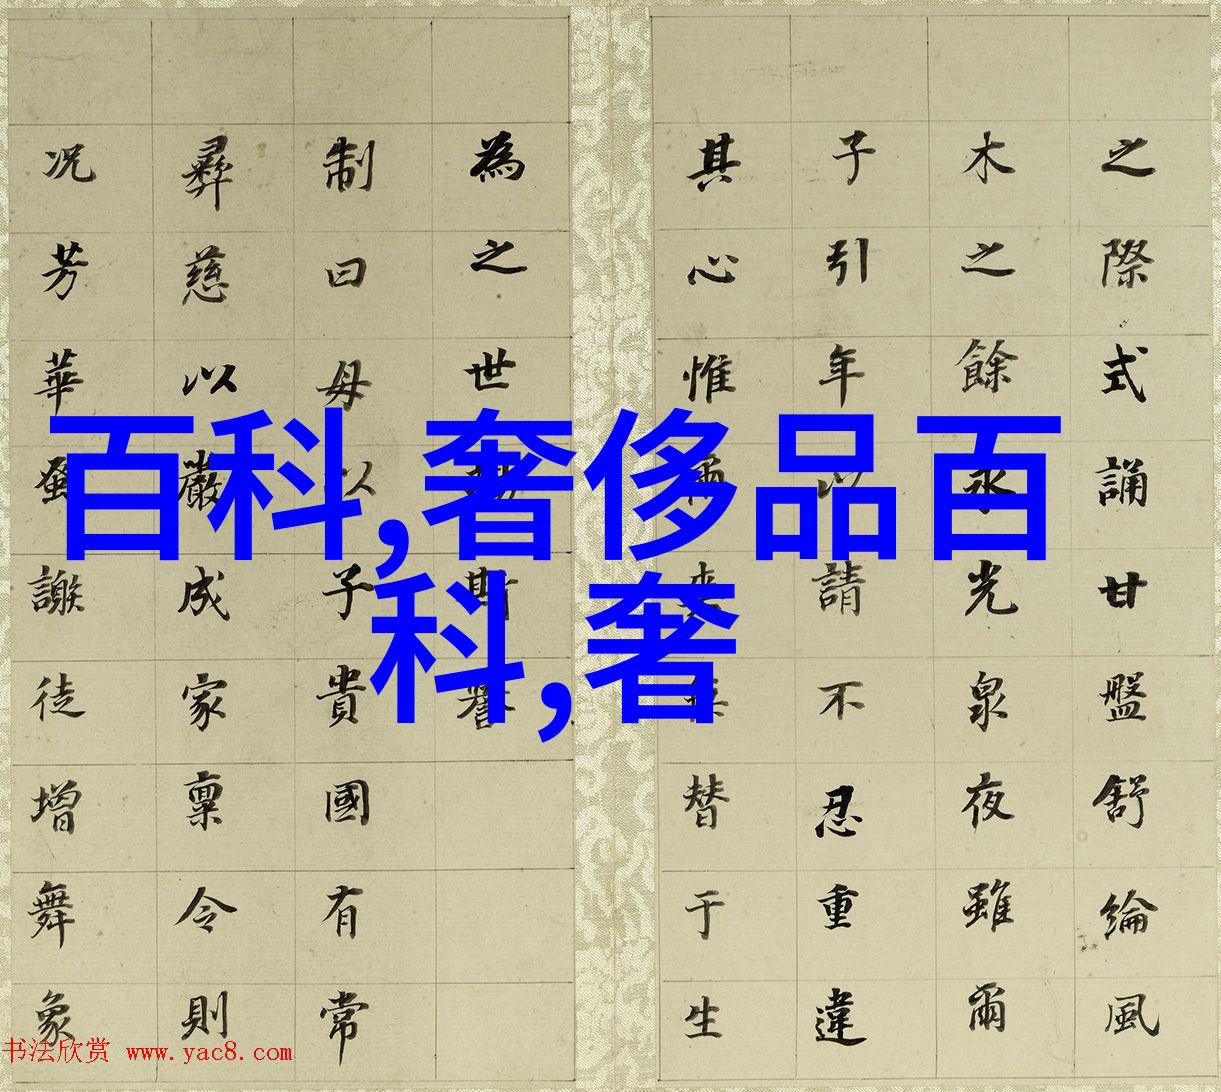 百科,奢侈品百
科,奢
之際式誦甘盤舒綸風
木之餘永光泉夜雖爾
子引年以請不忍重違
其心惟爾替于生
為之世斯譽
制曰母以子貴國有常
彝慈以嚴成家稟令則
況芳華蚤謝徒增舞象
书法欣赏 www.yac8.com